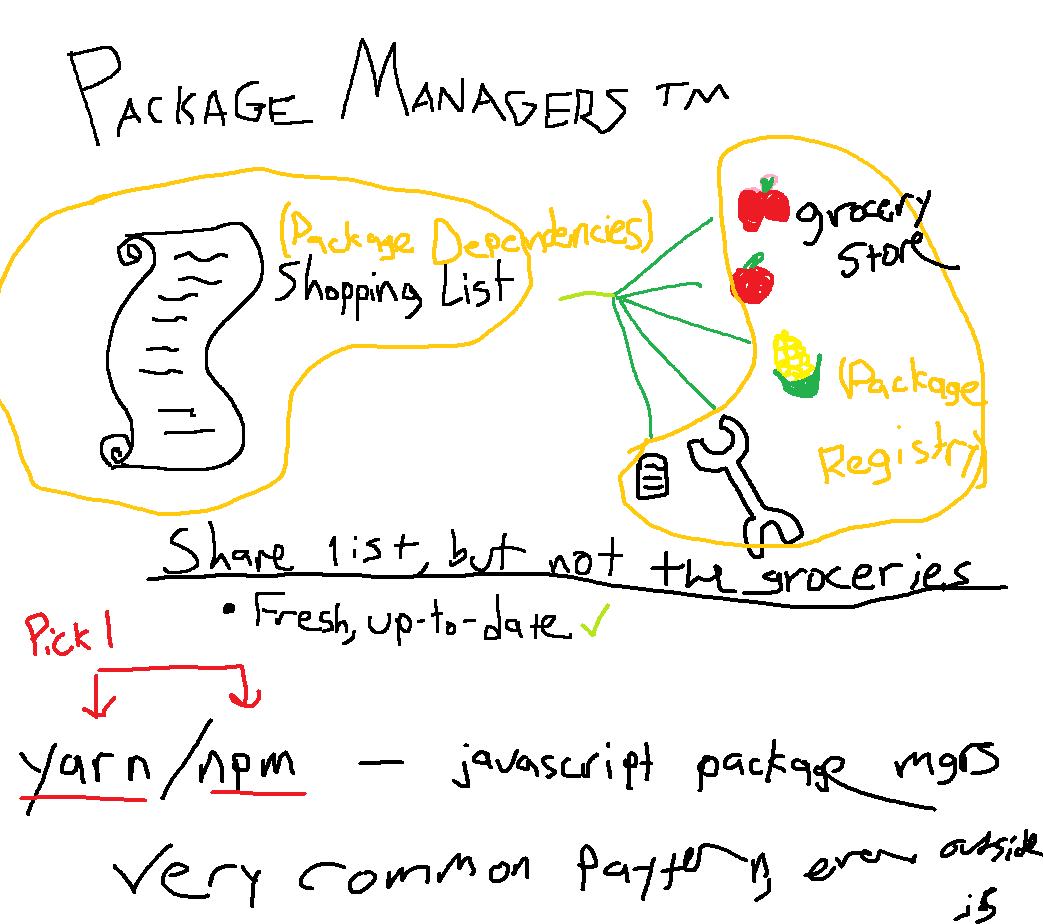 PACKAGE MANAGERS TM
(Package Dependencies)
Shopping List
grocery
store
(Package
Registry)
Share list, but not the groceries
• Fresh, up-to-date ✓
Pick 1
yarn/npm — javascript package mgrs
Very common pattern, even outside
js